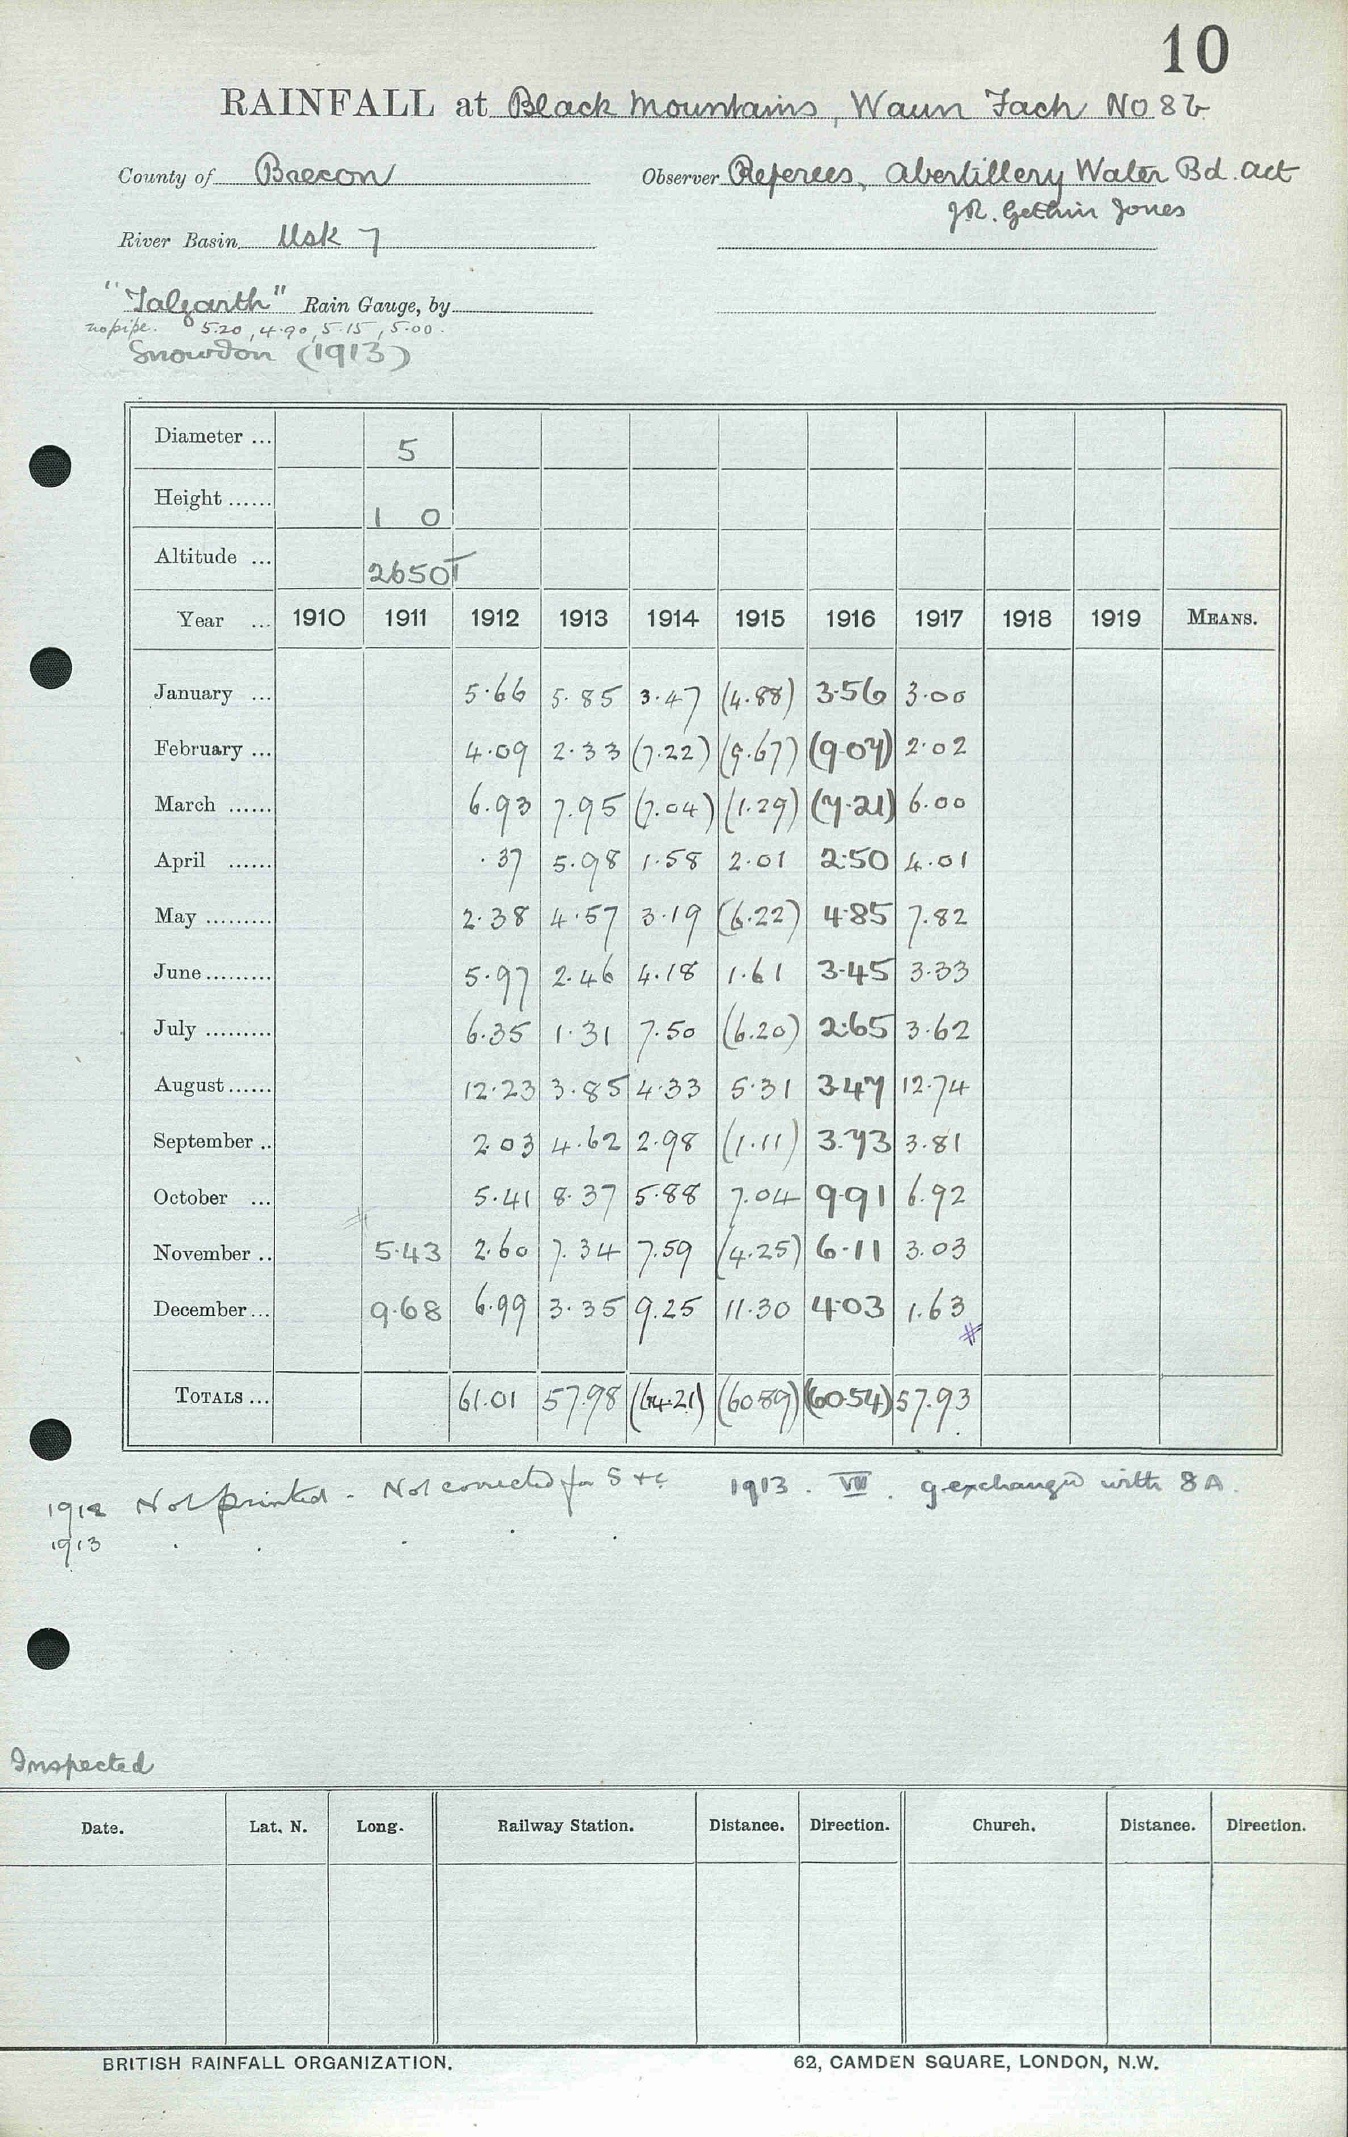 10
RAINFALL at Black Mountains, Waun Fach No 8b
County of Brecon Observer Referees, Abertillery Water Bd. Act
J.R. Gethin Jones
River Basin Usk 7
"Talgarth" Rain Gauge, by
no pipe. 5.20, 4.90, 5.15, 5.00.
Snowdon (1913)
Diameter ... 5
Height ...... 1 0
Altitude ... 2650T
Year ... 1910 1911 1912 1913 1914 1915 1916 1917 1918 1919 MEANS.
January ... 5.66 5.85 3.47 (4.88) 3.56 3.00
February ... 4.09 2.33 (7.22) (9.67) (9.07) 2.02
March ...... 6.93 7.95 (7.04) (1.29) (7.21) 6.00
April ...... .37 5.98 1.58 2.01 2.50 4.01
May ......... 2.38 4.57 3.19 (6.22) 4.85 7.82
June ......... 5.97 2.46 4.18 1.61 3.45 3.33
July ......... 6.35 1.31 7.50 (6.20) 2.65 3.62
August ...... 12.23 3.85 4.33 5.31 3.47 12.74
September .. 2.03 4.62 2.98 (1.11) 3.73 3.81
October ... 5.41 8.37 5.88 7.04 9.91 6.92
November .. 5.43 2.60 7.34 7.59 (4.25) 6.11 3.03
December ... 9.68 6.99 3.35 9.25 11.30 4.03 1.63
TOTALS ... 61.01 57.98 (64.21) (60.89) (60.54) 57.93
1912 Not printed - Not corrected for S & c 1913. VII. g exchanged with 8A.
1913 . . . . .
Inspected
Date. Lat. N. Long. Railway Station. Distance. Direction. Church. Distance. Direction.
BRITISH RAINFALL ORGANIZATION. 62, CAMDEN SQUARE, LONDON, N.W.